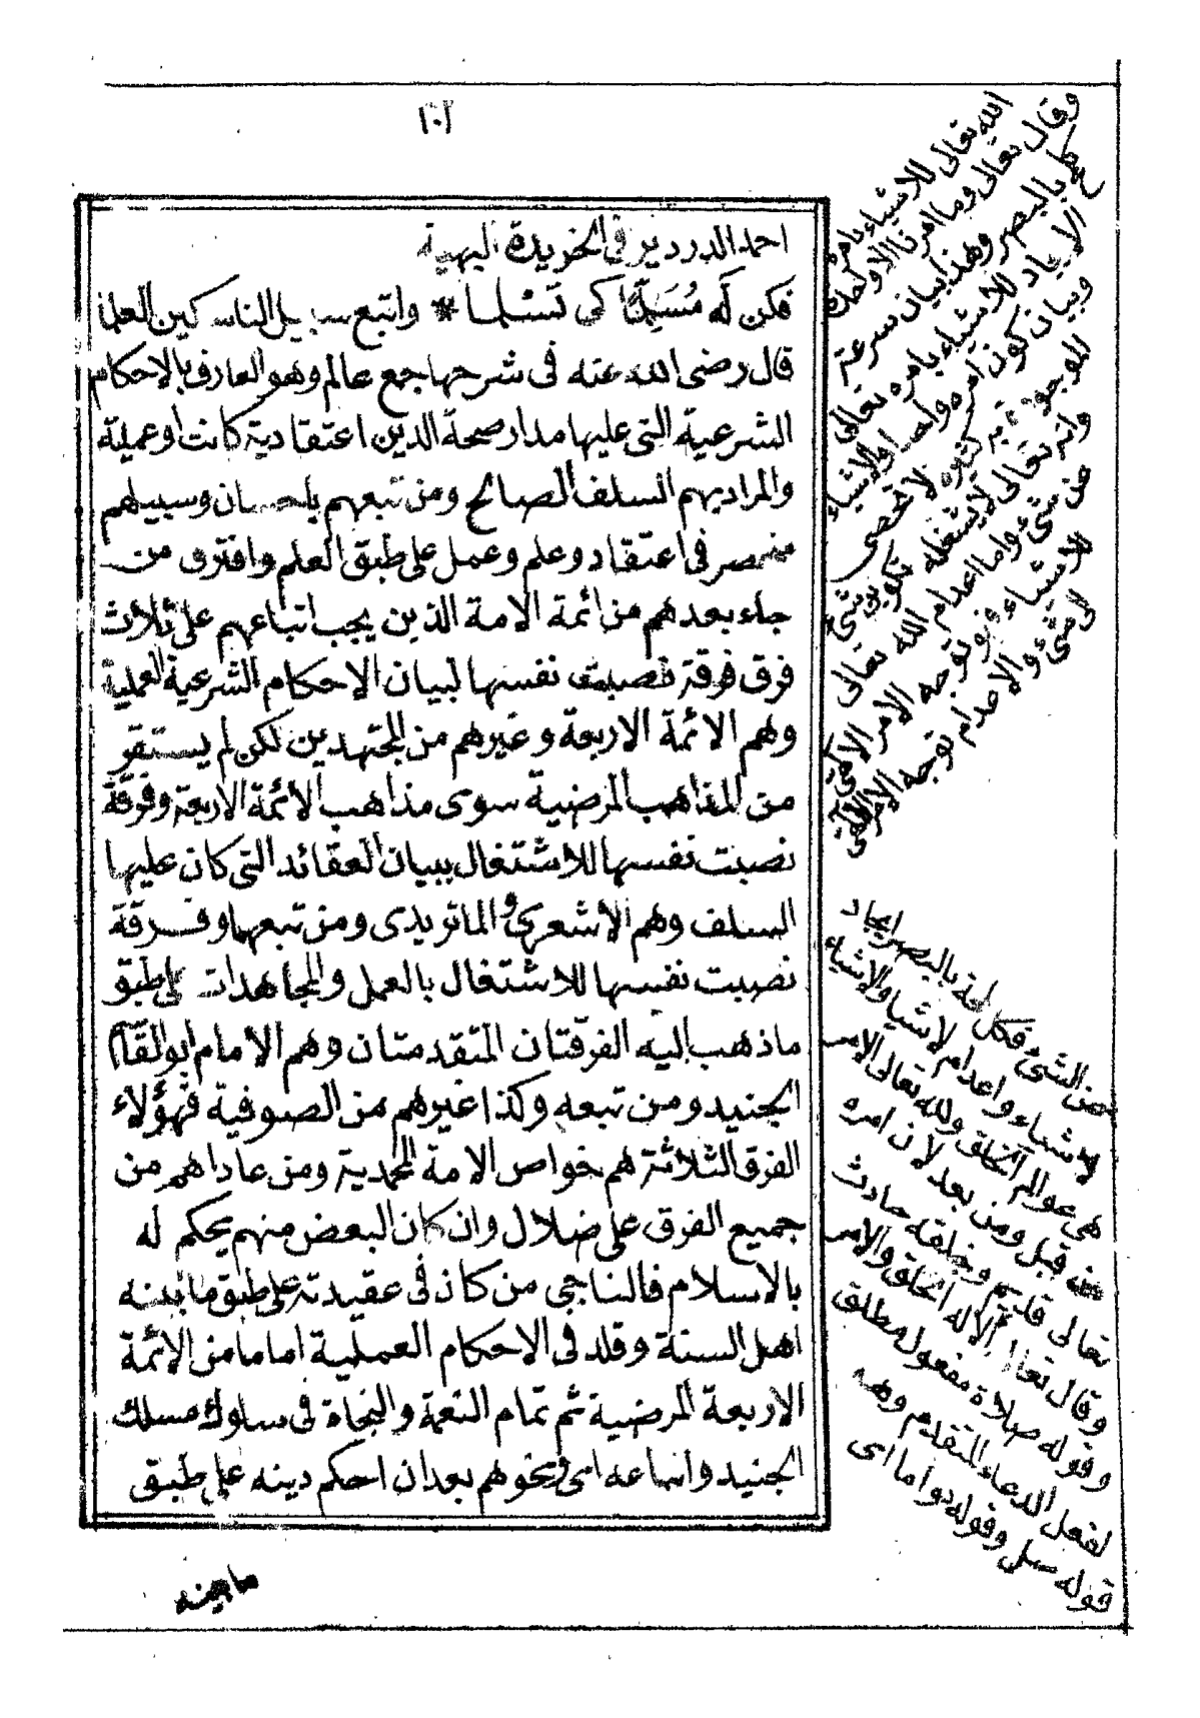 ١٠١
احمد الدردير فى الخريدة البهية
فكن له مُسَلِّمًا كى تَسْلما * واتبع سبيل الناسكين العلما
قال رضى الله عنه فى شرحها جمع عالم وهو العارف بالاحكام
الشرعية التى عليها مدار صحة الدين اعتقادية كانت او عملية
والمراد بهم السلف الصالح ومن تبعهم باحسان وسبيلهم
منحصر فى اعتقاد وعلم وعمل على طبق العلم وافترق من
جاء بعدهم من ائمة الامة الذين يجب اتباعهم على ثلاث
فرق فرقة نصبت نفسها لبيان الاحكام الشرعية العملية
وهم الائمة الاربعة وغيرهم من المجتهدين لكن لم يستقر
من المذاهب المرضية سوى مذاهب الائمة الاربعة وفرقة
نصبت نفسها للاشتغال ببيان العقائد التى كان عليها
السلف وهم الاشعرى والماتريدى ومن تبعهما وفرقة
نصبت نفسها للاشتغال بالعمل والمجاهدات على طبق
ماذهب اليه الفرقتان المتقدمتان وهم الامام ابو القاسم
الجنيد ومن تبعه وكذا غيرهم من الصوفية فهؤلاء
الفرق الثلاثة هم خواص الامة المحمدية ومن عاداهم من
جميع الفرق على ضلال وان كان البعض منهم يحكم له
بالاسلام فالناجى من كان فى عقيدته على طبق مابينه
اهل السنة وقلد فى الاحكام العملية اماما من الائمة
الاربعة المرضية ثم تمام النعمة والنجاة فى سلوك مسلك
الجنيد واتباعه اى ونحوهم بعد ان احكم دينه على طبق
مابينه
الله تعالى للاشياء بامره
وقال تعالى وما امرنا الا واحدة
كلمح بالبصر وهذا بيان سرعة
الايجاد للاشياء بامره تعالى
وبيان كون امره واحدا والاشياء
الموجودة به كثيرة لا تحصى
وانه تعالى لا يشغله تكوين شئ
عن شئ واما اعدام الله تعالى
للاشياء فهو توجه الامر الالهى
عن الشئ فكلمحة بالبصر ايجاد
لاشياء واعدام لاشيا والاشياء
هى عوالم الخلق ولله تعالى الامر
من قبل ومن بعد لان امره
تعالى قديم وخلقه حادث
وقال تعالى الا له الخلق والامر
وقوله صلاة مفعول مطلق
لفعل الدعاء المتقدم وهو
قوله سل وقوله دواما اى